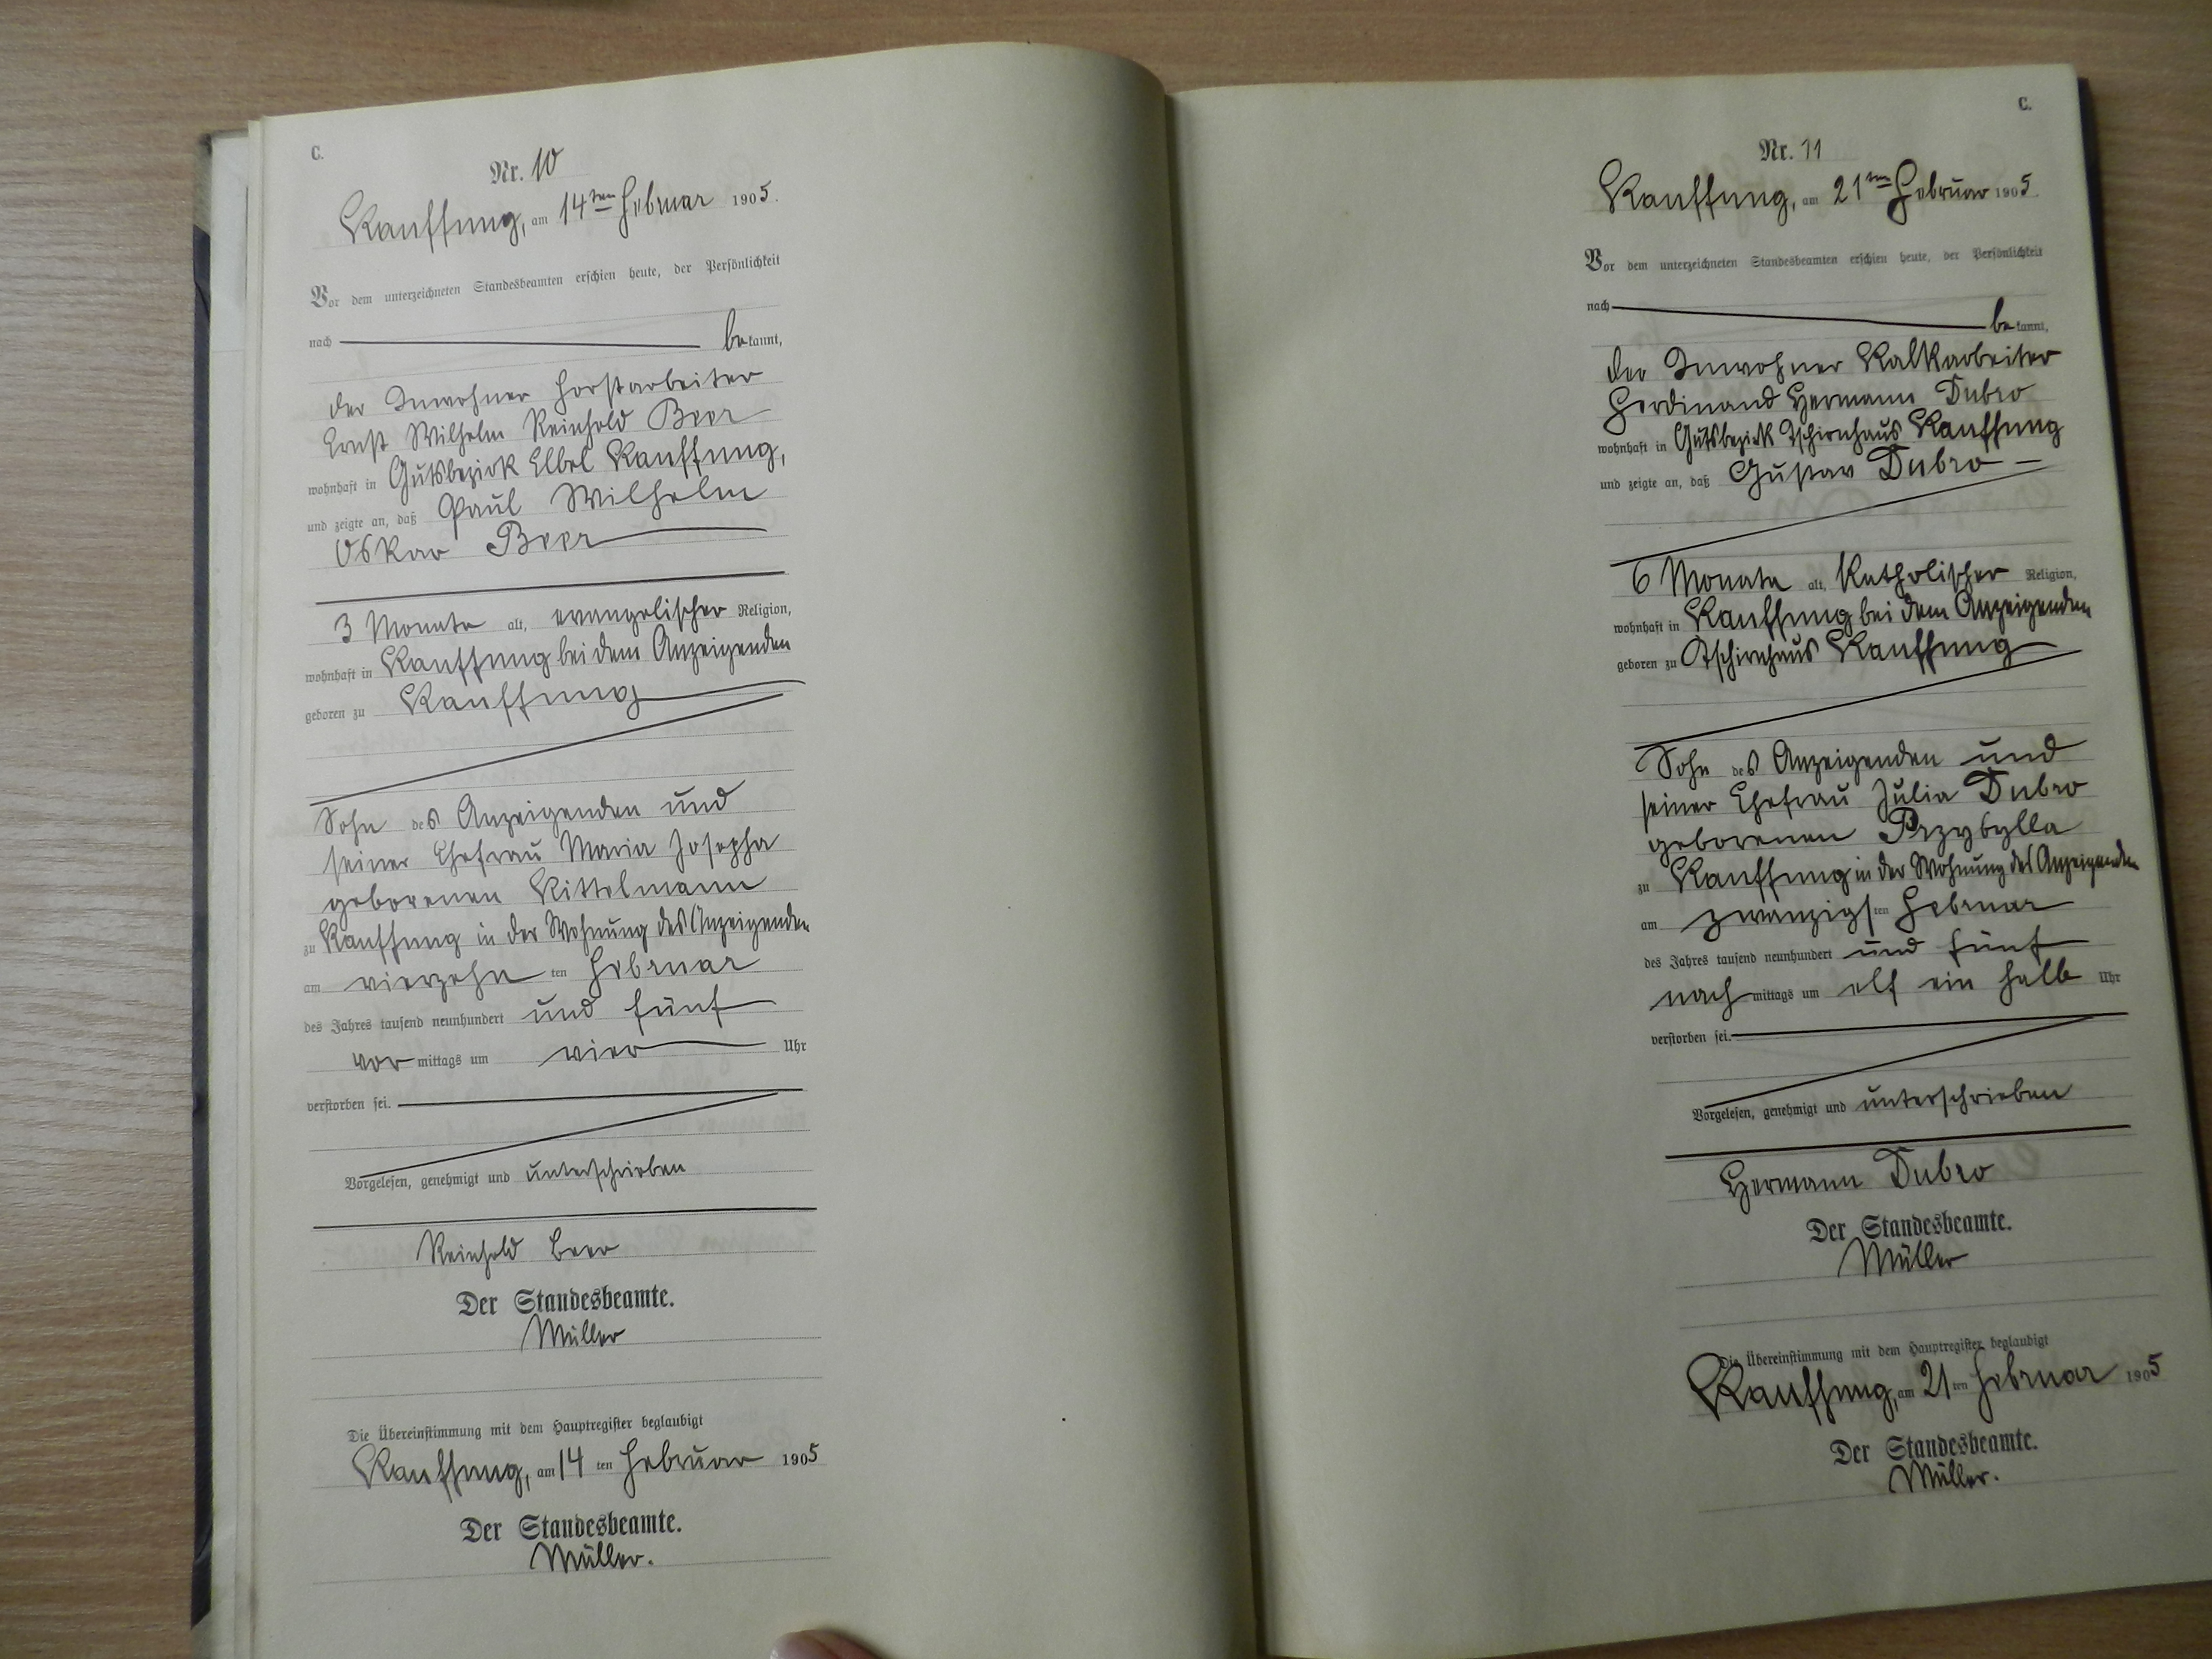 C.
Nr. 10
Kauffung, am 14ten Februar 1905.
Vor dem unterzeichneten Standesbeamten erschien heute, der Persönlichkeit
nach bekannt,
der Inwohner Forstarbeiter
Ernst Wilhelm Reinhold Beer
wohnhaft in Gutsbezirk Elbel Kauffung,
und zeigte an, daß Paul Wilhelm
Oskar Beer
3 Monate alt, evangelischer Religion,
wohnhaft in Kauffung bei dem Anzeigenden
geboren zu Kauffung
Sohn des Anzeigenden und
seiner Ehefrau Maria Josepha
geborenen Kittelmann
zu Kauffung in der Wohnung des Anzeigenden
am vierzehnten Februar
des Jahres tausend neunhundert und fünf
vormittags um vier Uhr
verstorben sei.
Vorgelesen, genehmigt und unterschrieben
Reinhold Beer
Der Standesbeamte.
Müller
Die Übereinstimmung mit dem Hauptregister beglaubigt
Kauffung, am 14ten Februar 1905
Der Standesbeamte.
Müller.
C.
Nr. 11
Kauffung, am 21ten Februar 1905.
Vor dem unterzeichneten Standesbeamten erschien heute, der Persönlichkeit
nach bekannt,
der Inwohner Kalkarbeiter
Ferdinand Hermann Dubro
wohnhaft in Gutsbezirk Tschirnhaus Kauffung
und zeigte an, daß Gustav Dubro
6 Monate alt, katholischer Religion,
wohnhaft in Kauffung bei dem Anzeigenden
geboren zu Tschirnhaus Kauffung
Sohn des Anzeigenden und
seiner Ehefrau Julia Dubro
geborenen Przybylla
zu Kauffung in der Wohnung des Anzeigenden
am zwanzigsten Februar
des Jahres tausend neunhundert und fünf
nachmittags um elf ein halb Uhr
verstorben sei.
Vorgelesen, genehmigt und unterschrieben
Hermann Dubro
Der Standesbeamte.
Müller
Die Übereinstimmung mit dem Hauptregister beglaubigt
Kauffung, am 21ten Februar 1905
Der Standesbeamte.
Müller.